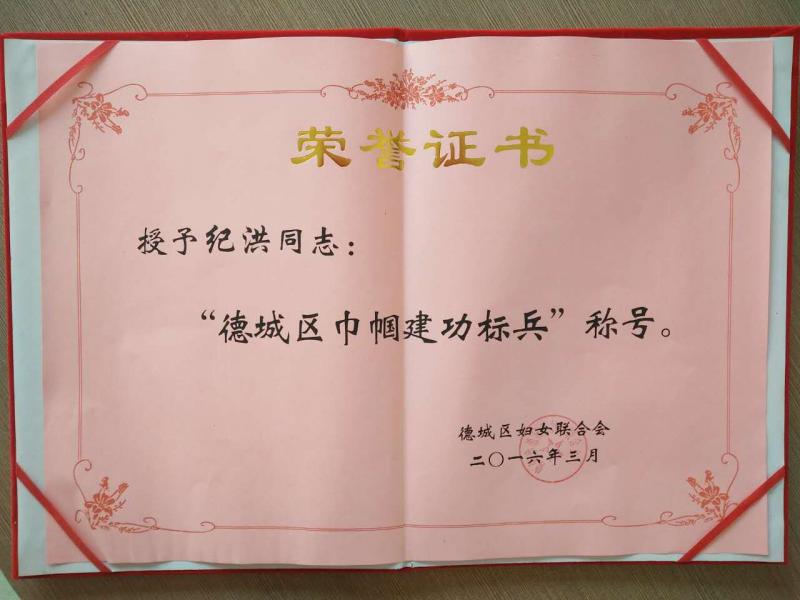 荣誉证书
授予纪洪同志：
“德城区巾帼建功标兵”称号。
德城区妇女联合会
二〇一六年三月